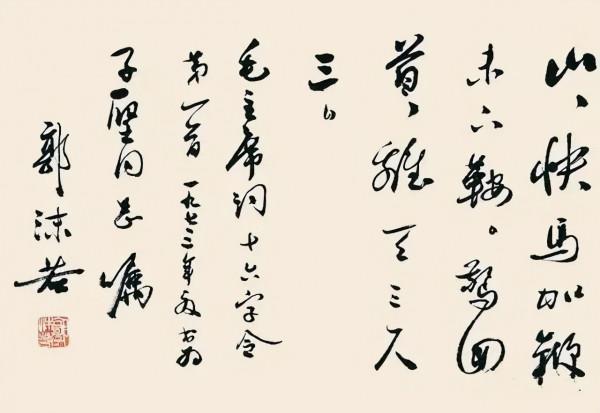 山、快馬加鞭
未下鞍。驚回
首、離天三尺
三。
毛主席詞十六字令
第一首 一九七二年秋書為
子堅同志嘱
郭沫若